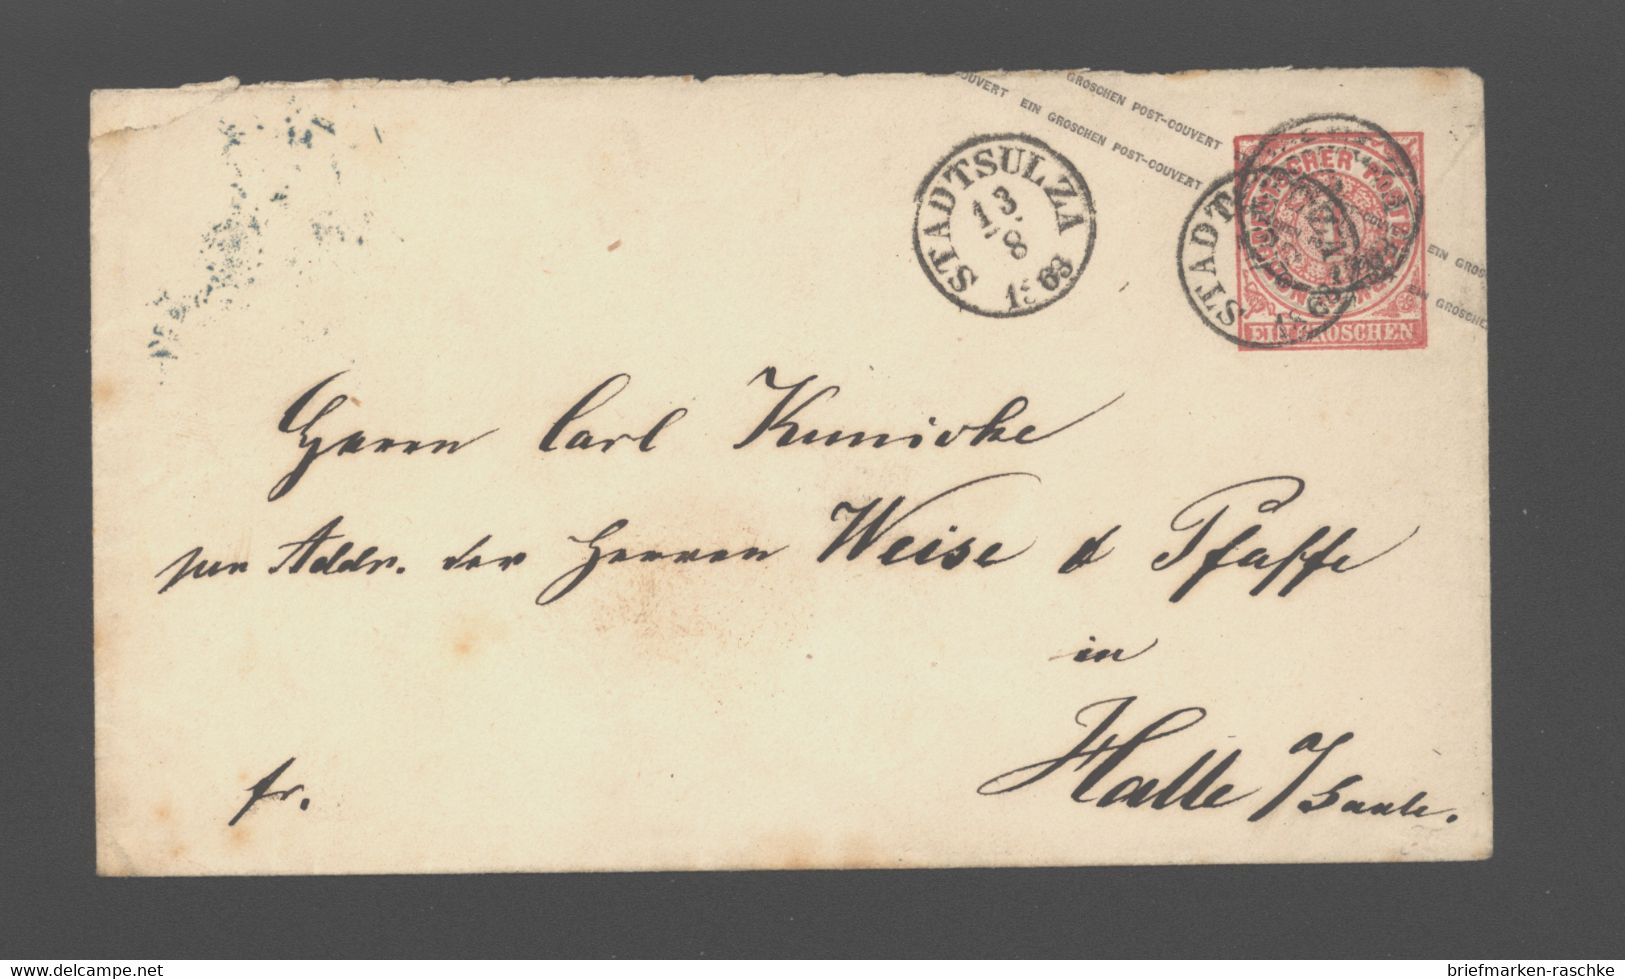 OUVERT EIN GROSCHEN POST-COUVERT
GROSCHEN POST-COUVERT
STADTSULZA
13/8
1868
STADT
NORDDEUTSCHER POSTBEZIRK
EIN GROSCHEN
EIN GROS
EIN GROSCHEN
Herrn Carl Kunicke
per Addr. der Herren Weise & Pfaffe
in
Halle a/Saale.
fr.
delcampe.net
briefmarken-raschke